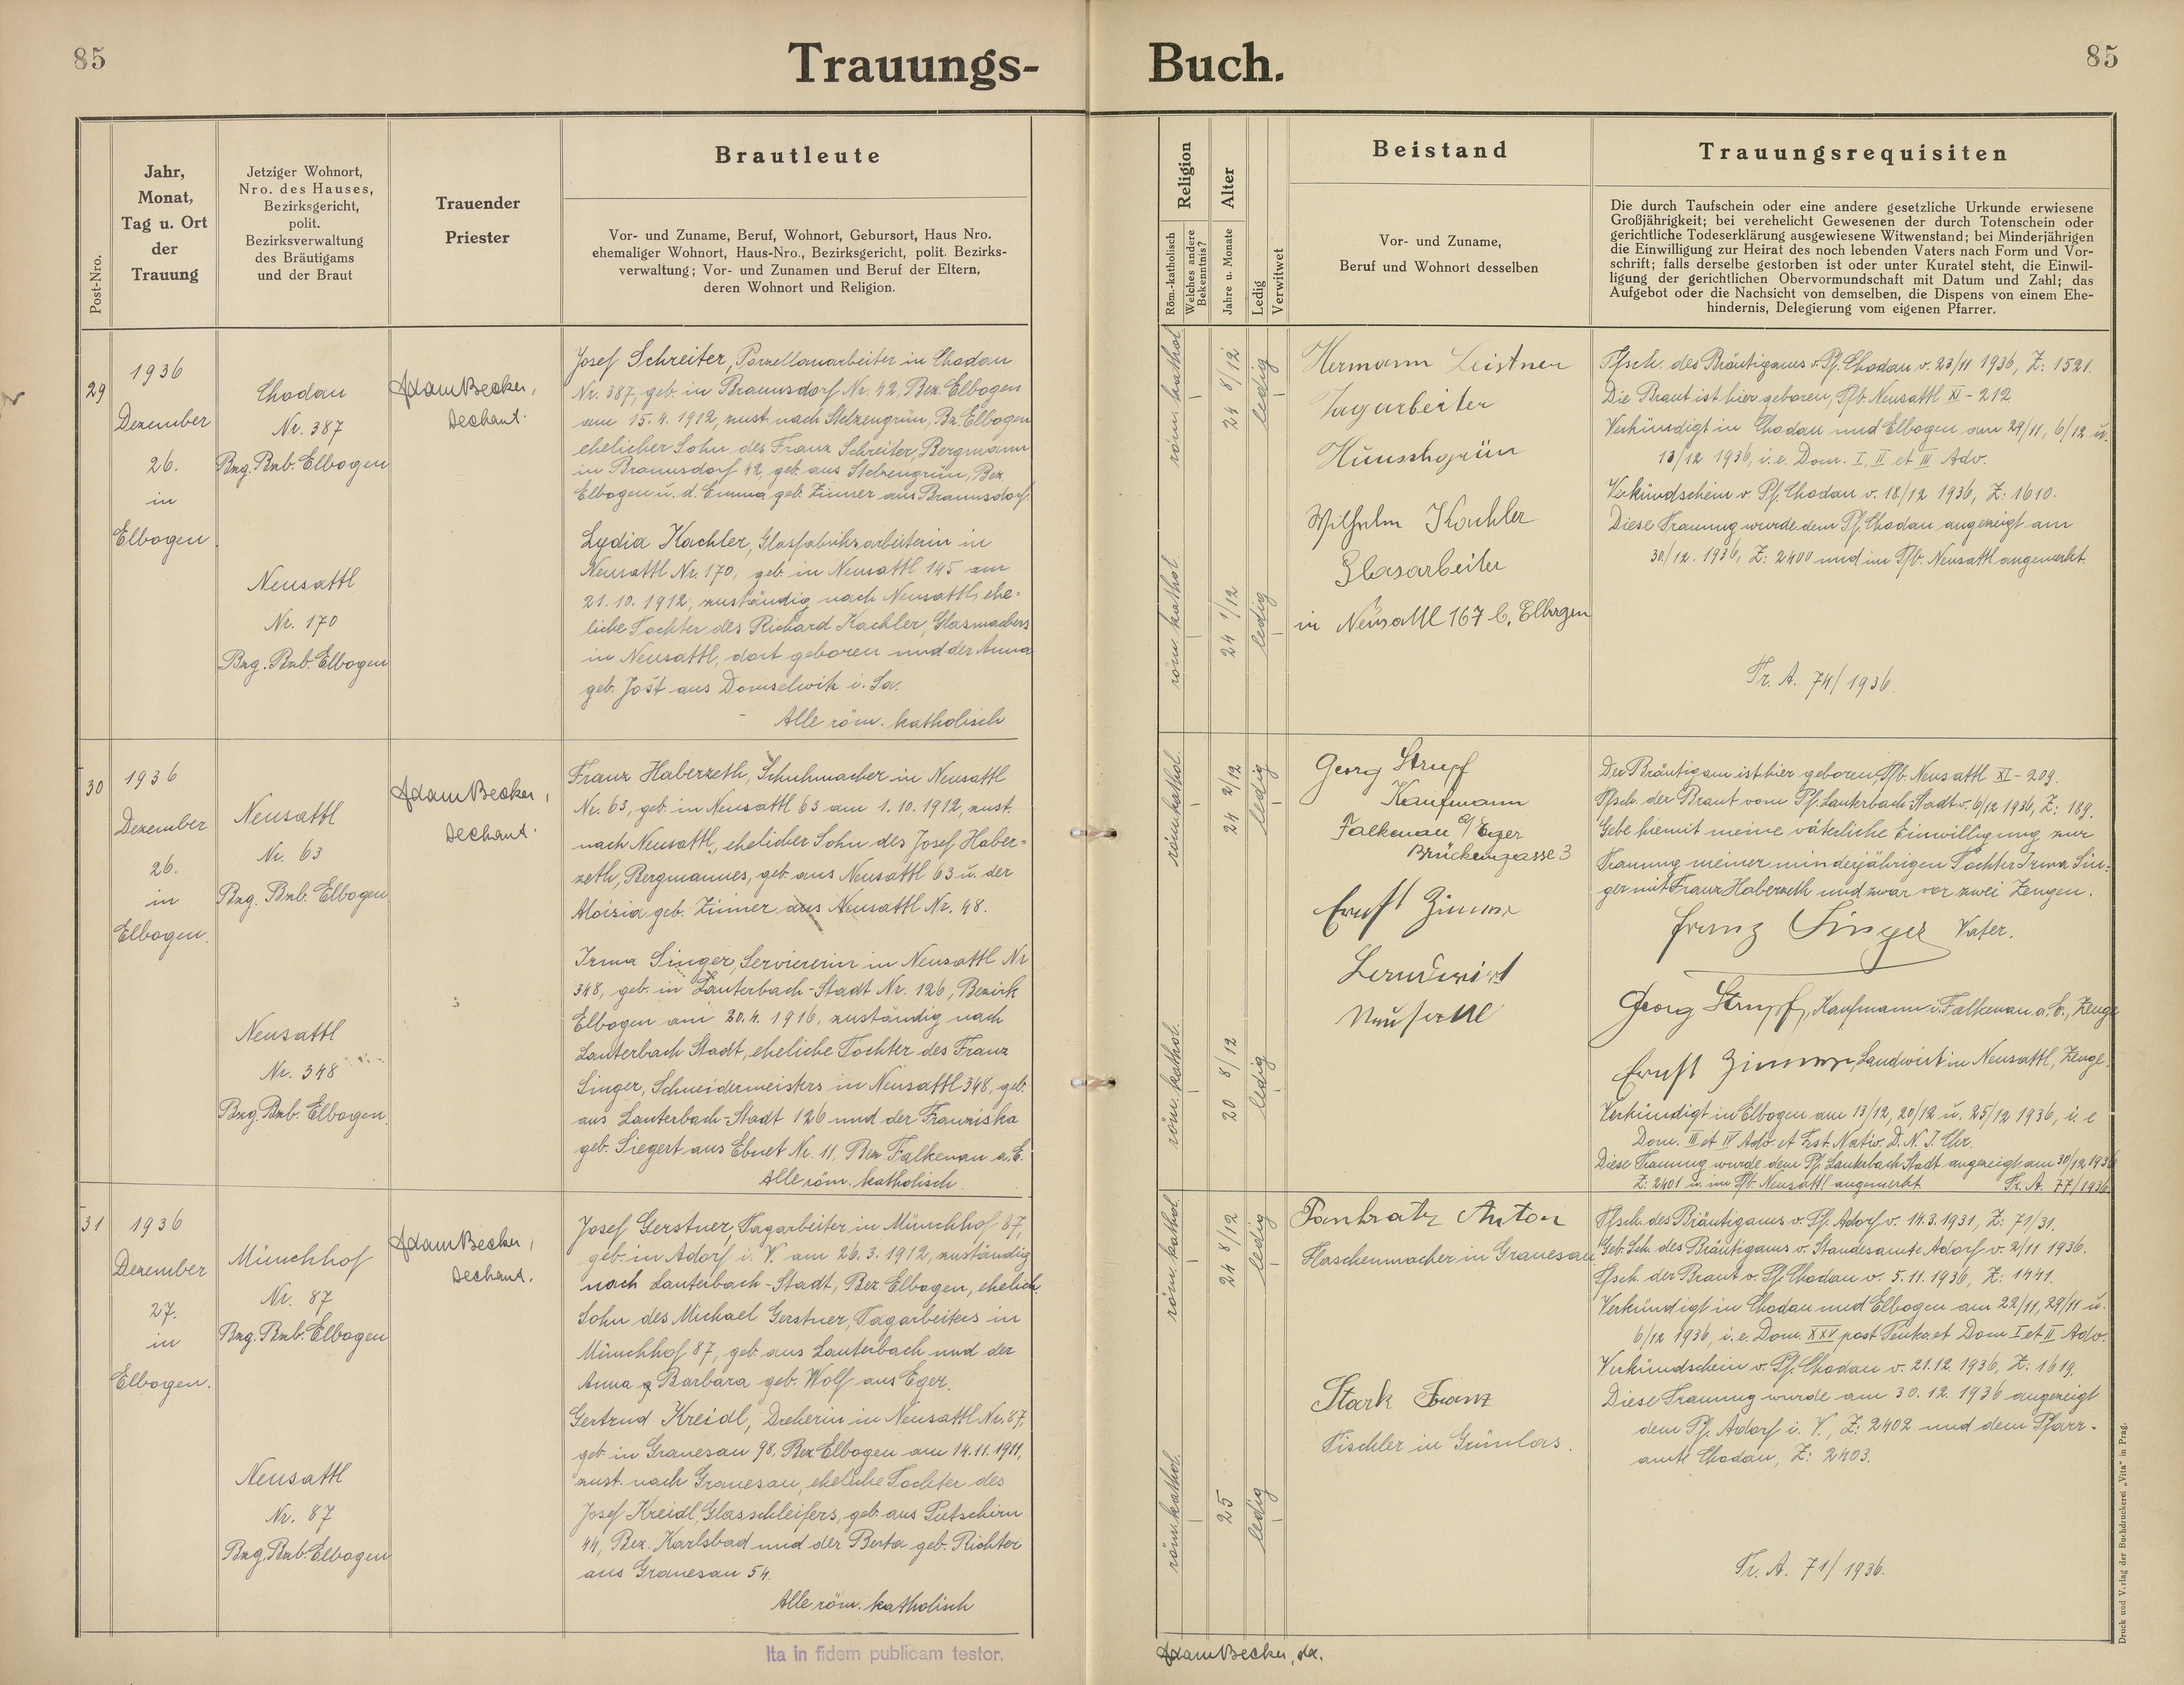 85
Trauungs-
Buch.
85
Post-Nro.
Jahr,
Monat,
Tag u. Ort
der
Trauung
Jetziger Wohnort,
Nro. des Hauses,
Bezirksgericht,
polit.
Bezirksverwaltung
des Bräutigams
und der Braut
Trauender
Priester
Brautleute
Vor- und Zuname, Beruf, Wohnort, Gebursort, Haus Nro.
ehemaliger Wohnort, Haus-Nro., Bezirksgericht, polit. Bezirks-
verwaltung; Vor- und Zunamen und Beruf der Eltern,
deren Wohnort und Religion.
Religion
Röm.-katholisch
Welches andere
Bekenntnis?
Alter
Jahre u. Monate
Ledig
Verwitwet
Beistand
Vor- und Zuname,
Beruf und Wohnort desselben
Trauungsrequisiten
Die durch Taufschein oder eine andere gesetzliche Urkunde erwiesene
Großjährigkeit; bei verehelicht Gewesenen der durch Totenschein oder
gerichtliche Todeserklärung ausgewiesene Witwenstand; bei Minderjährigen
die Einwilligung zur Heirat des noch lebenden Vaters nach Form und Vor-
schrift; falls derselbe gestorben ist oder unter Kuratel steht, die Einwil-
ligung der gerichtlichen Obervormundschaft mit Datum und Zahl; das
Aufgebot oder die Nachsicht von demselben, die Dispens von einem Ehe-
hindernis, Delegierung vom eigenen Pfarrer.
29
1936
Dezember
26.
in
Elbogen
Chodau
Nr. 387
Bzg. Bzb. Elbogen
Neusattl
Nr. 170
Bzg. Bzb. Elbogen
Adam Becker,
Dechant.
Josef Schreiter, Porzellanarbeiter in Chodau
Nr. 387, geb. in Braunsdorf Nr. 42, Bez. Elbogen
am 15.4.1912, zust. nach Stelzengrün, Bz. Elbogen
ehelicher Sohn des Franz Schreiter, Bergmann
in Braunsdorf 42, geb. aus Stelzengrün, Bez.
Elbogen u. d. Emma geb. Zinner aus Braunsdorf.
Lydia Kachler, Glasfabriksarbeiterin in
Neusattl Nr. 170, geb. in Neusattl 145 am
21.10.1912, zuständig nach Neusattl, ehe-
liche Tochter des Richard Kachler, Glasmachers
in Neusattl, dort geboren und der Anna
geb. Jost aus Domselwitz i. Sa.
Alle röm. katholisch
röm. kathol.
24 8/12
ledig
röm. kathol.
24 1/12
ledig
Hermann Leistner
Tagarbeiter
Hunschgrün
Wilhelm Kachler
Glasarbeiter
in Neusattl 167 b. Elbogen
Tfsch. des Bräutigams v. Pf. Chodau v. 23/11 1936, Z: 1521.
Die Braut ist hier geboren, Tfb. Neusattl XI - 212.
Verkündigt in Chodau und Elbogen am 29/11, 6/12 u.
13/12 1936, i. e. Dom. I, II et III Adv.
Verkündschein v. Pf. Chodau v. 18/12 1936, Z: 1610.
Diese Trauung wurde dem Pf. Chodau angezeigt am
30/12. 1936, Z: 2400 und im Tfb. Neusattl angemerkt.
Tr. A. 74/1936.
30
1936
Dezember
26.
in
Elbogen.
Neusattl
Nr. 63
Bzg. Bzb. Elbogen
Neusattl
Nr. 348
Bzg. Bzb. Elbogen
Adam Becker,
Dechant.
Franz Haberzeth, Schuhmacher in Neusattl
Nr. 63, geb. in Neusattl 63 am 1.10.1912, zust.
nach Neusattl, ehelicher Sohn des Josef Haber-
zeth, Bergmannes, geb. aus Neusattl 63 u. der
Aloisia geb. Zinner aus Neusattl Nr. 48.
Irma Singer, Serviererin in Neusattl Nr
348, geb. in Lauterbach-Stadt Nr. 126, Bezirk
Elbogen am 20.4.1916, zuständig nach
Lauterbach Stadt, eheliche Tochter des Franz
Singer, Schneidermeisters in Neusattl 348, geb.
aus Lauterbach-Stadt 126 und der Franziska
geb. Siegert aus Ebnet Nr. 11, Bez. Falkenau a. E.
Alle röm. katholisch.
röm. kathol.
24 2/12
ledig
röm. kathol.
20 8/12
ledig
Georg Strupf
Kaufmann
Falkenau a/ Eger
Brückengasse 3
Ernst Zinner
Landwirt
Neusattl
Der Bräutigam ist hier geboren, Tfb. Neusattl XI - 209.
Tfsch. der Braut vom Pf. Lauterbach Stadt v. 6/12 1936, Z: 189.
Gebe hiemit meine väterliche Einwilligung zur
Trauung meiner minderjährigen Tochter Irma Sin-
ger mit Franz Haberzeth und zwar vor zwei Zeugen.
Franz Singer Vater.
Georg Strupf, Kaufmann i. Falkenau a. E., Zeuge
Ernst Zinner, Landwirt in Neusattl, Zeuge.
Verkündigt in Elbogen am 13/12, 20/12 u. 25/12 1936, i. e
Dom. III et IV Adv. et Fest. Nativ. D. N. J. Chr.
Diese Trauung wurde dem Pf. Lauterbach Stadt angezeigt am 30/12 1936
Z: 2401 u. im Tfb. Neusattl angemerkt. Tr. A. 77/1936
31
1936
Dezember
27.
in
Elbogen.
Münchhof
Nr. 87
Bzg. Bzb. Elbogen
Neusattl
Nr. 87
Bzg. Bzb. Elbogen
Adam Becker,
Dechant.
Josef Gerstner, Tagarbeiter in Münchhof 87,
geb. in Adorf i. V. am 26.3.1912, zuständig
nach Lauterbach-Stadt, Bez. Elbogen, ehelich.
Sohn des Michael Gerstner, Tagarbeiters in
Münchhof 87, geb. aus Lauterbach und der
Anna Barbara geb. Wolf aus Eger.
Gertrud Kreidl, Dreherin in Neusattl Nr. 87,
geb. in Granesau 98, Bez Elbogen am 14.11.1911,
zust. nach Granesau, eheliche Tochter des
Josef Kreidl, Glasschleifers, geb. aus Putschirn
44, Bez. Karlsbad und der Berta geb. Richter
aus Granesau 54.
Alle röm. katholisch
röm. kathol.
24 8/12
ledig
röm. kathol.
25
ledig
Pankratz Anton
Flaschenmacher in Granesau
Stark Franz
Tischler in Grünlas.
Tfsch. des Bräutigams v. Pf. Adorf v. 14.3.1931, Z: 71/31.
Geb. Sch. des Bräutigams v. Standesamte Adorf v. 2/11 1936.
Tfsch. der Braut v. Pf. Chodau v. 5.11.1936, Z: 1441.
Verkündigt in Chodau und Elbogen am 22/11, 29/11 u.
6/12 1936, i. e. Dom. XXV post Pentec. et Dom I et II Adv.
Verkündschein v. Pf. Chodau v. 21.12.1936, Z: 1619.
Diese Trauung wurde am 30.12.1936 angezeigt
dem Pf. Adorf i. V., Z: 2402 und dem Pfarr-
amte Chodau, Z: 2403.
Tr. A. 71/1936.
Ita in fidem publicam testor.
Adam Becker, dec.
Druck und Verlag der Buchdruckerei „Vita" in Prag.